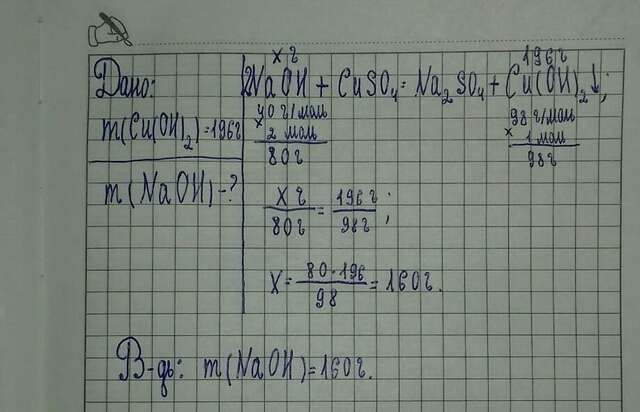 Дано:
m(Cu(OH)₂)=196г
m(NaOH)-?
x г 196г
2NaOH + CuSO₄ = Na₂SO₄ + Cu(OH)₂↓;
40 г/моль 98 г/моль
× 2 моль × 1 моль
80г 98г
x г / 80г = 196г / 98г ;
X = 80·196 / 98 = 160г.
В-дь: m(NaOH)=160г.